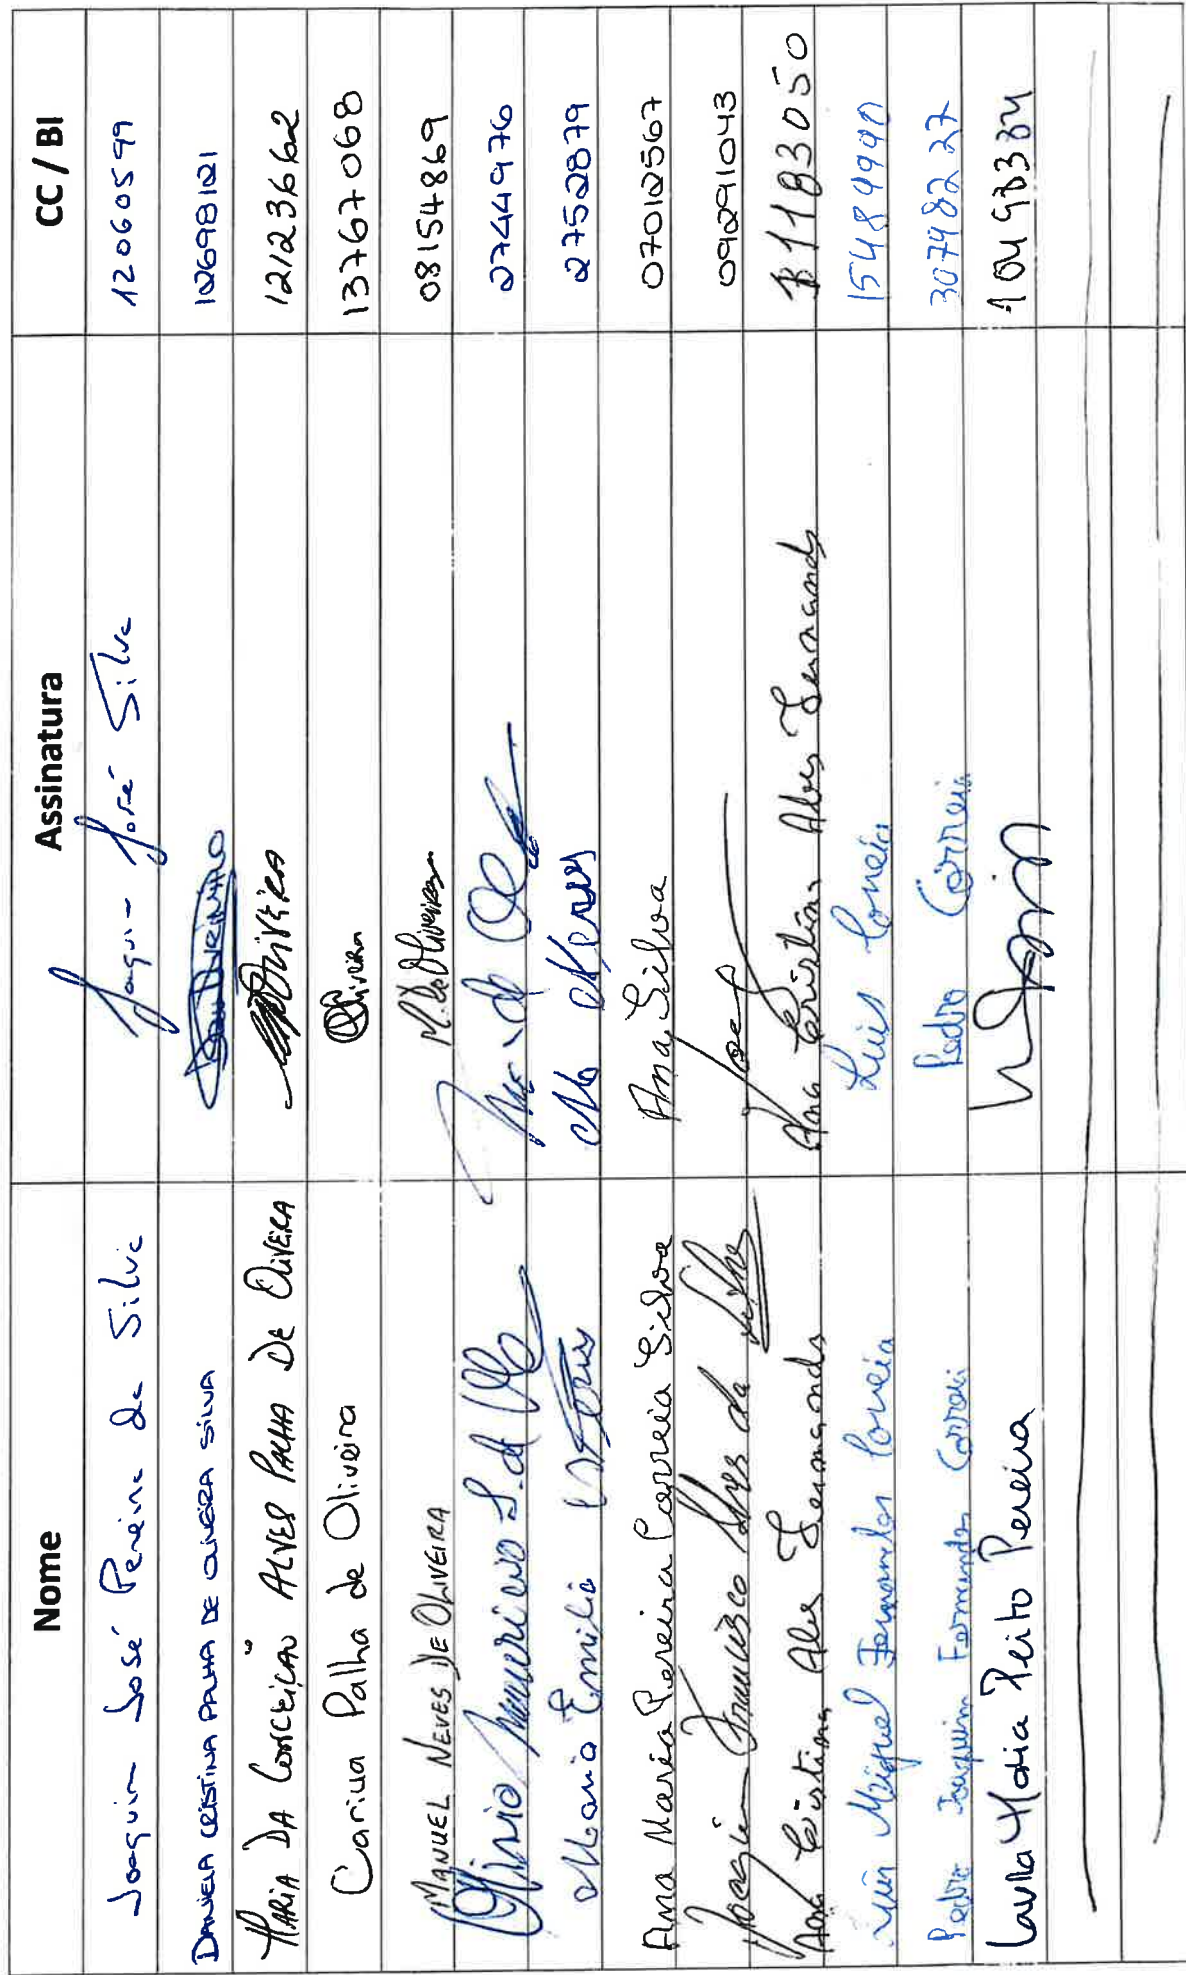 Nome Assinatura CC / BI
Joaquim José Pereira da Silva José Silva 12060599
DANIELA CRISTINA PALHA DE OLIVEIRA SILVA 12698121
MARIA DA CONCEIÇÃO ALVES PALHA DE OLIVEIRA Oliveira 12123662
Carina Palha de Oliveira Oliveira 13767068
MANUEL NEVES DE OLIVEIRA M. de Oliveira 08154869
2744976
Maria Emilia 2752879
Ana Maria Pereira Correia Silva Ana Silva 07012567
Joaquim Francisco Alves da Silva 09291043
Ana Cristina Alves Fernandes Ana Cristina Alves Fernandes 11183050
Luis Miguel Fernandes Correia Luis Correia
Pedro Joaquim Fernandes Correia Pedro Correia 30798227
Laura Maria Peito Pereira